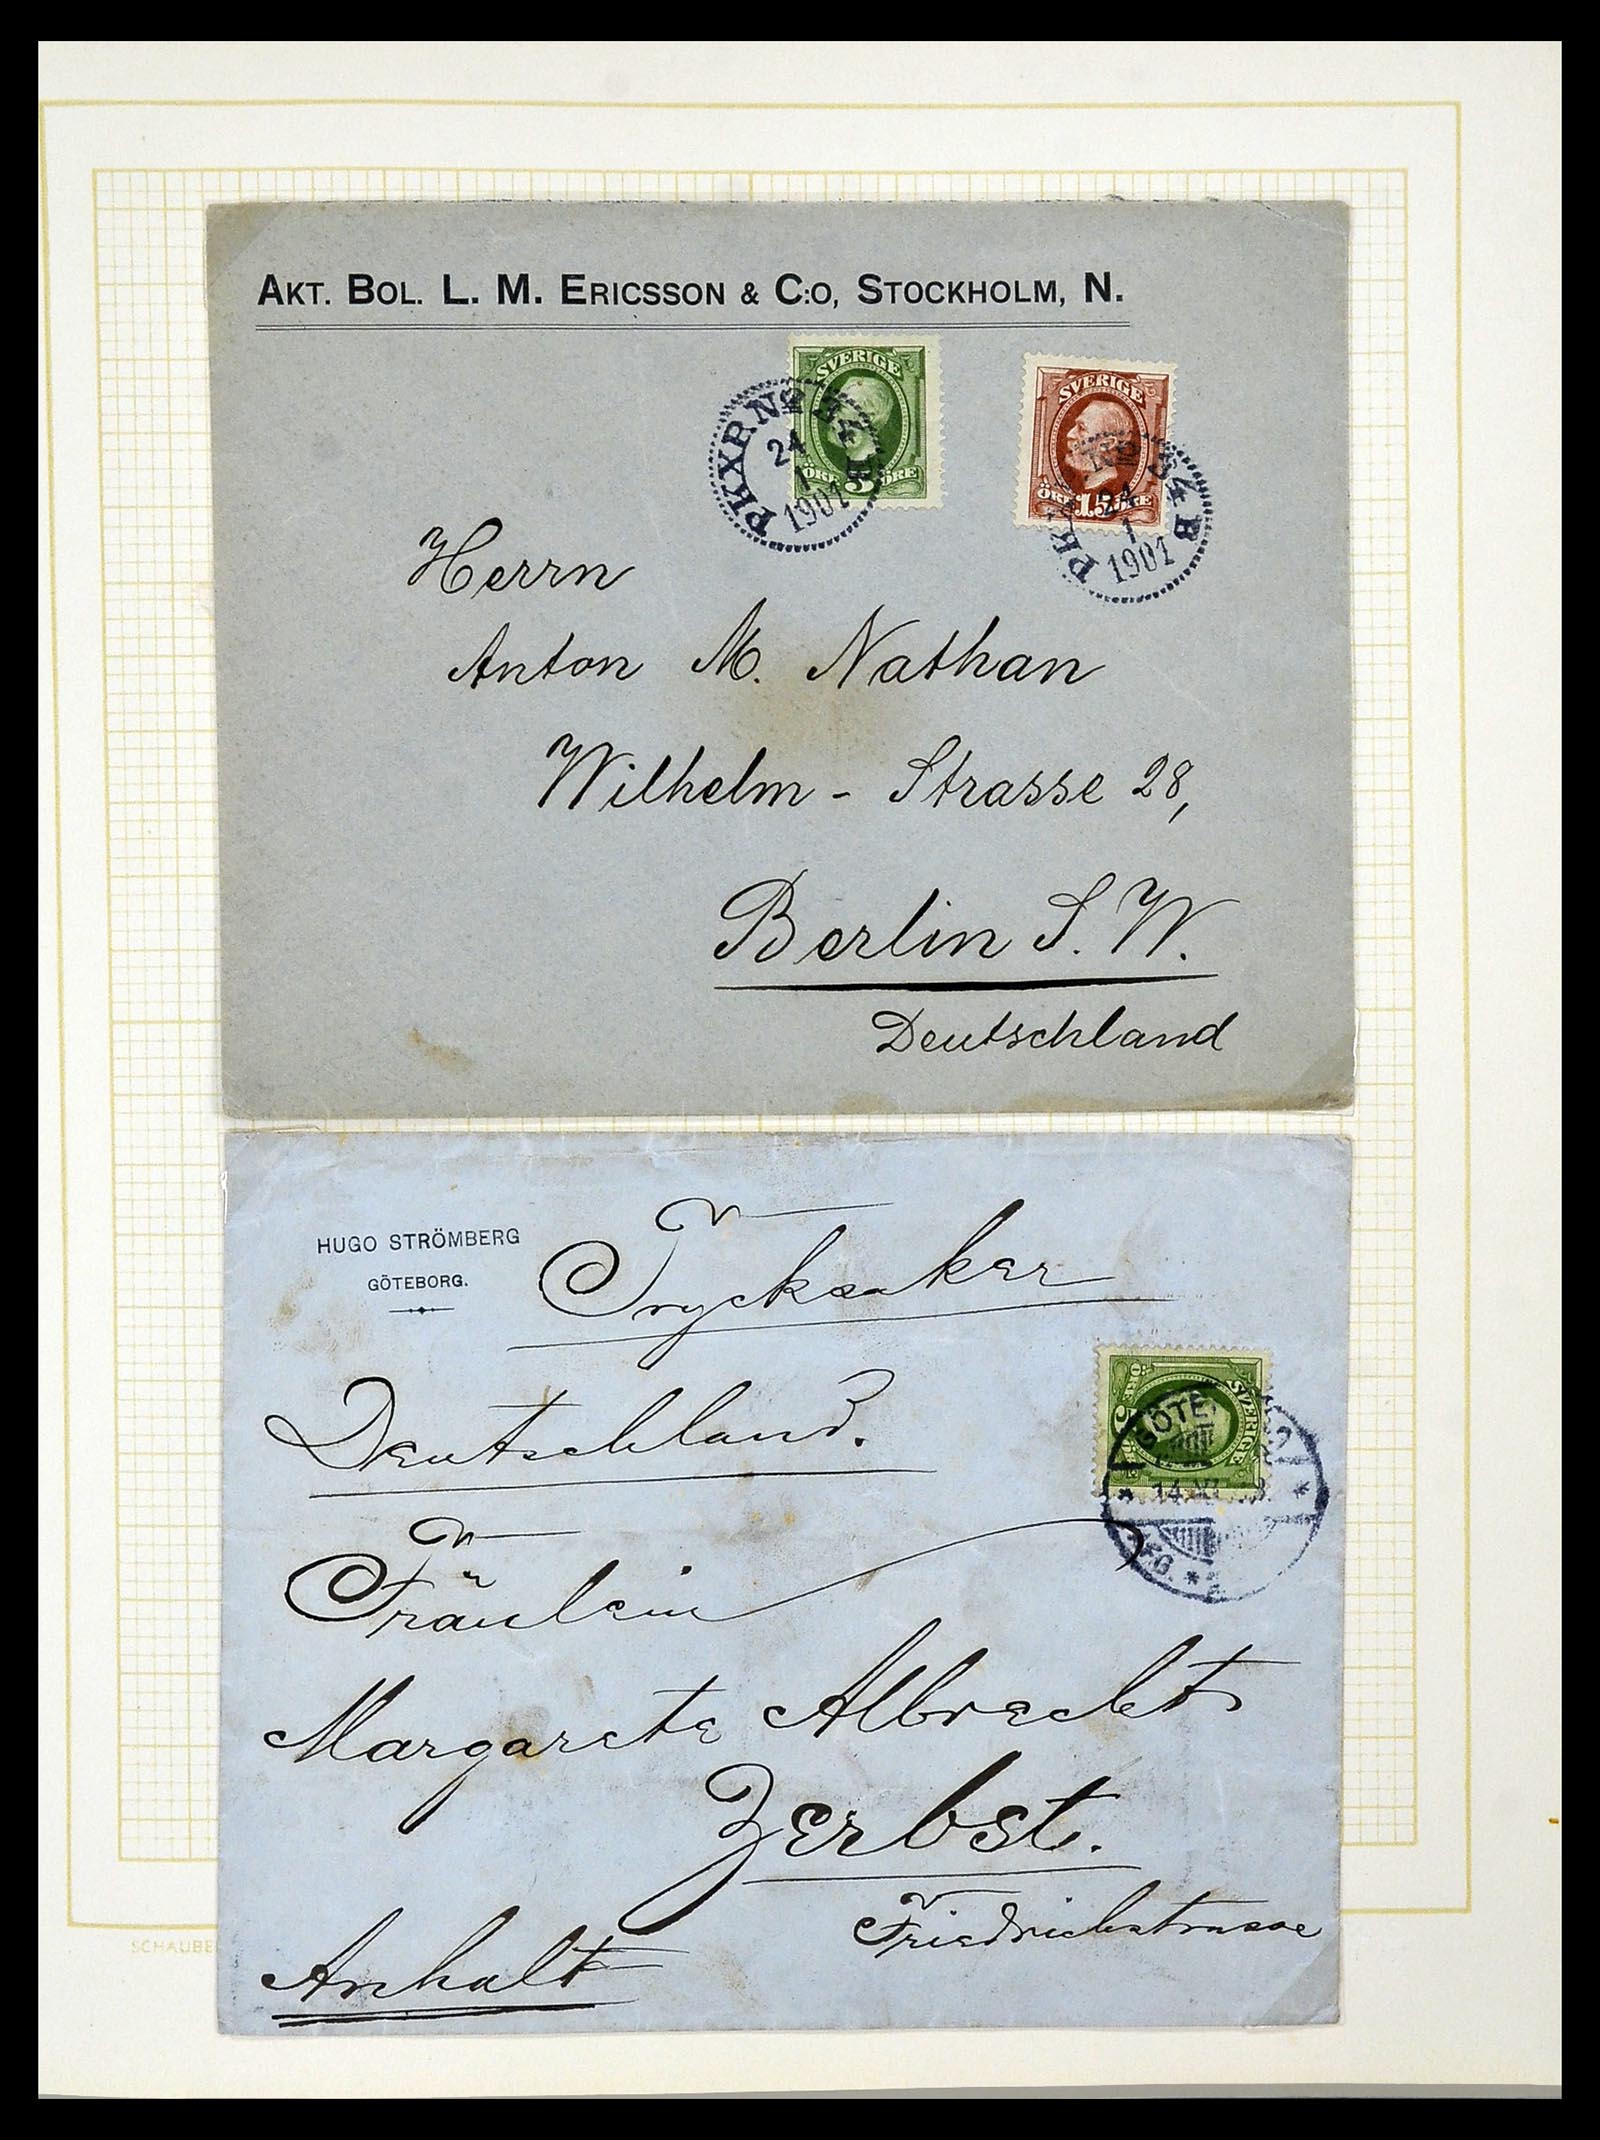 AKT. BOL. L. M. ERICSSON & C:O, STOCKHOLM, N.
SVERIGE
ÖRE 5 ÖRE
PKXP Nº 34 B
24
1
1901
SVERIGE
ÖRE 15 ÖRE
PK Nº 34 B
24
1
1901
Herrn
Anton M. Nathan
Wilhelm - Strasse 28,
Berlin S. W.
Deutschland
HUGO STRÖMBERG
GÖTEBORG.
Trycksaker
SVERIGE
5
GÖTE
14
Deutschland.
Fräulein
Margarete Albrecht
Zerbst.
Friedrichstrasse
Anhalt
SCHAUBE